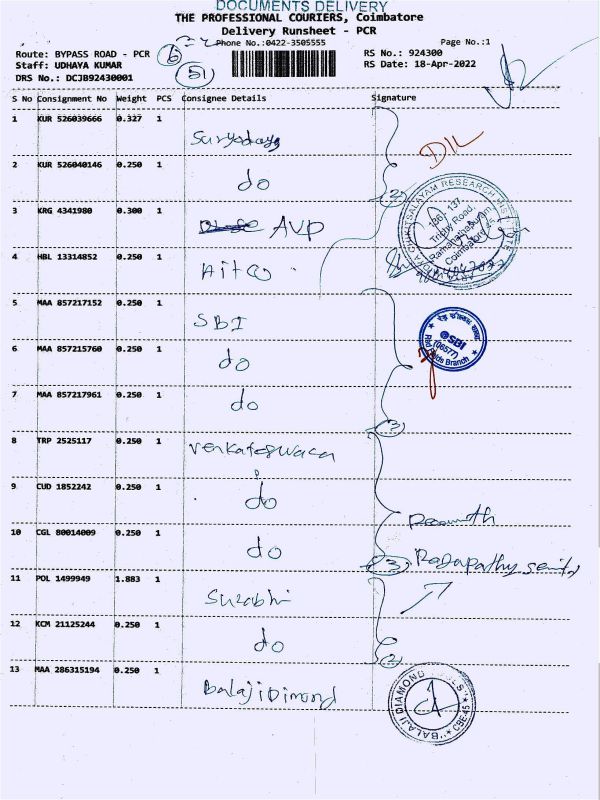 DOCUMENTS DELIVERY
THE PROFESSIONAL COURIERS, Coimbatore
Delivery Runsheet - PCR
Phone No.:0422-3505555
Page No.:1
Route: BYPASS ROAD - PCR
Staff: UDHAYA KUMAR
DRS No.: DCJB92430001
6
51
RS No.: 924300
RS Date: 18-Apr-2022
S No Consignment No Weight PCS Consignee Details Signature
1 KUR 526039666 0.327 1 Suryoday
2 KUR 526040146 0.250 1 do
2
3 KRG 4341980 0.300 1 AVP
4 HBL 13314852 0.250 1
5 MAA 857217152 0.250 1 SBI
6 MAA 857215760 0.250 1 do
7 MAA 857217961 0.250 1 do
3
8 TRP 2525117 0.250 1 Venkateswara
9 CUD 1852242 0.250 1 do
10 CGL 80014009 0.250 1 do
3
11 POL 1499949 1.883 1 Surabhi
12 KCM 21125244 0.250 1 do
2
13 MAA 286315194 0.250 1 Balaji Dimond
136, 137
Trichy Road,
Ramanathapuram
Coimbatore
SBI
(06577)
Red Fields Branch
BALAJI DIAMOND TOOLS
CBE-45